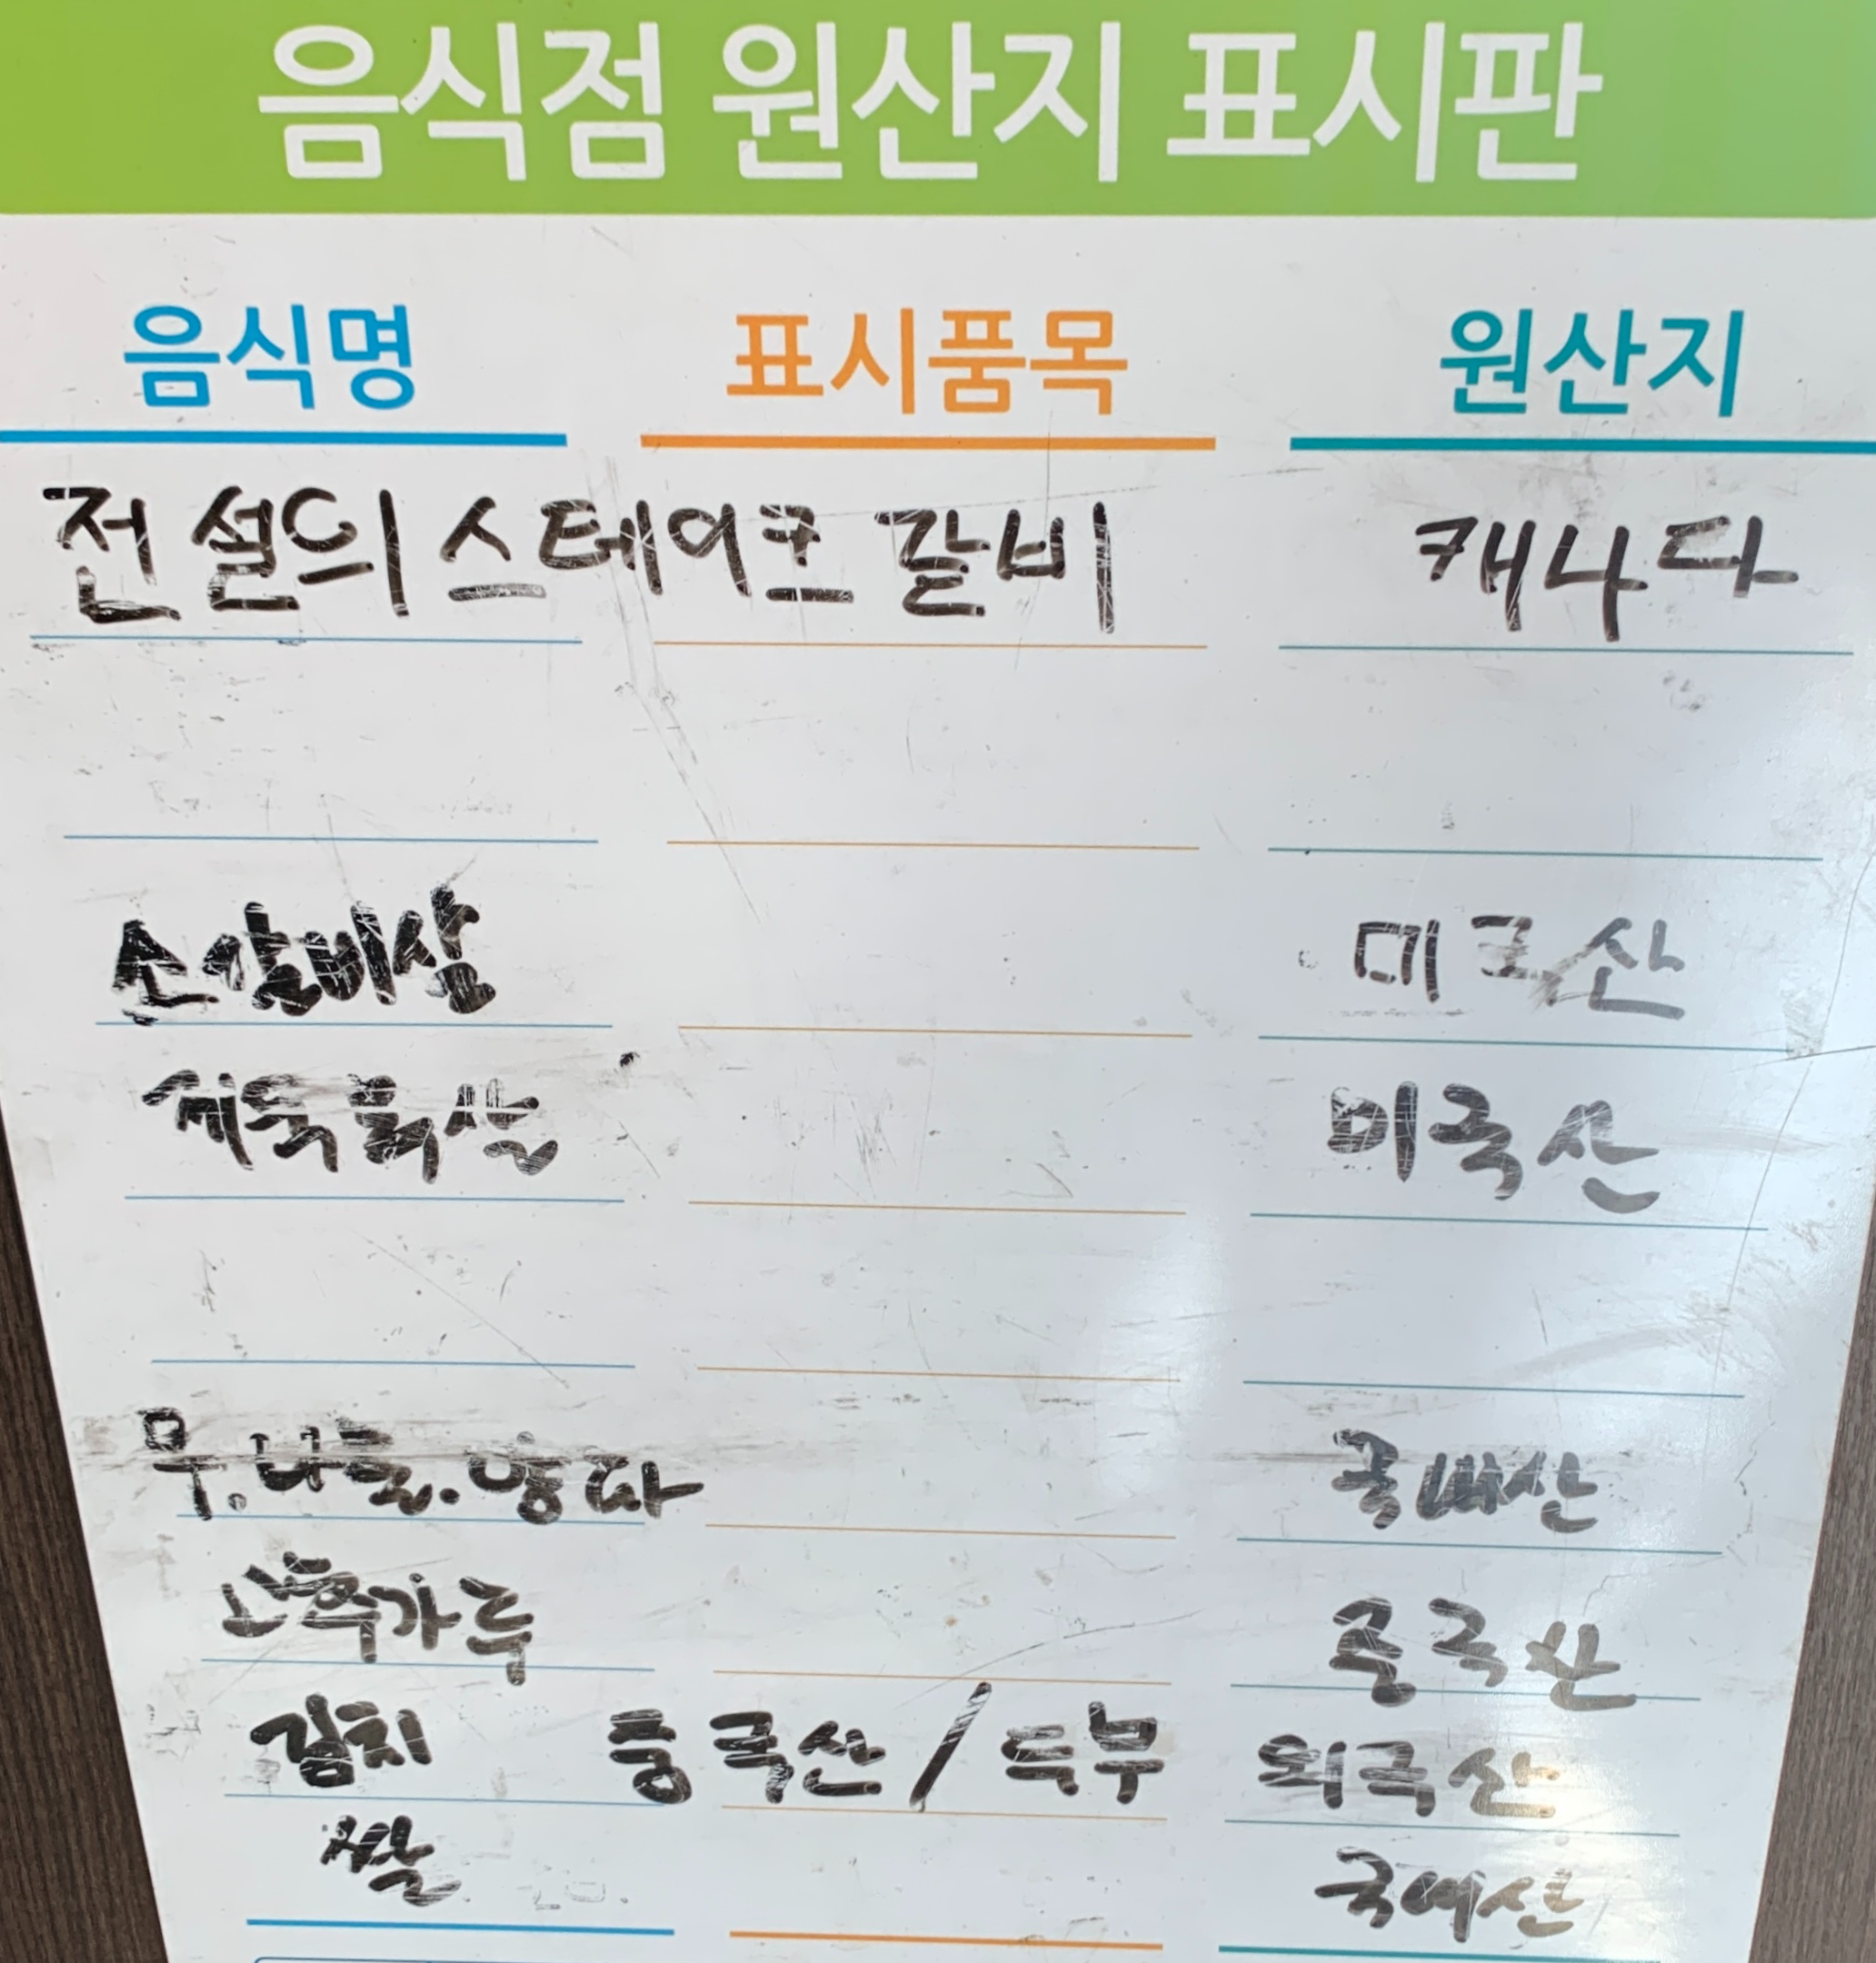 음식점 원산지 표시판
음식명 표시품목 원산지
전설의 스테이크 갈비 캐나다
소갈비살 미국산
제육 미국산
무.나물.양파 국내산
고추가루 중국산
김치 중국산 / 두부 외국산
쌀 국내산